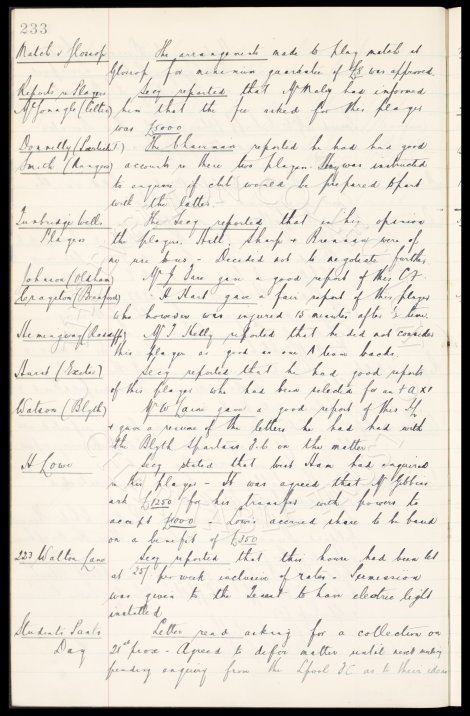 233
Match v Glossop The arrangements made to play match at
Glossop for minimum guarantee of £ was approved.
Reports re Players Secy reported that Mr Maley had informed
McGonagle (Celtic) him that the fee asked for this player
was £5000
Donnelly ( ) The Chairman reported he had had good
Smith (Rangers) accounts re these two players. Secy was instructed
to enquire if club would be prepared to part
with the latter.
Tunbridge Wells The Secy reported that in his opinion
Players the players Hill Sharp & Brennan were of
no use to us - Decided not to negotiate further.
Johnson (Oldham) Mr gave a good report of this C.F.
Crayston (Bradford) H Hart gave a fair report of this player
who however was injured 15 minutes after time.
Hemingway (Rossett) Mr J Kelly reported that he did not consider
this player as good as our A team backs.
Hurst (Exeter) Secy reported that he had good reports
of this player who had been selected for an F.A. XI
Watson (Blyth) Mr W gave a good report of this
& gave a resume of the letters he had had with
the Blyth Spartans F.C. on the matter.
H Lowe Secy stated that West Ham had enquired
re this player - It was agreed that Mr Gibbins
ask £1250 for his transfer with powers to
accept £1000 - Lowe's accrued share to be based
on a benefit of £350
223 Walton Lane Secy reported that this house had been let
at 25/- per week inclusive of rates - Permission
was given to the Tenant to have electric light
installed.
Students Panto Letter read asking for a collection on
Day prox - Agreed to defer matter until next meeting
pending enquiry from the Lpool F.C as to their ideas